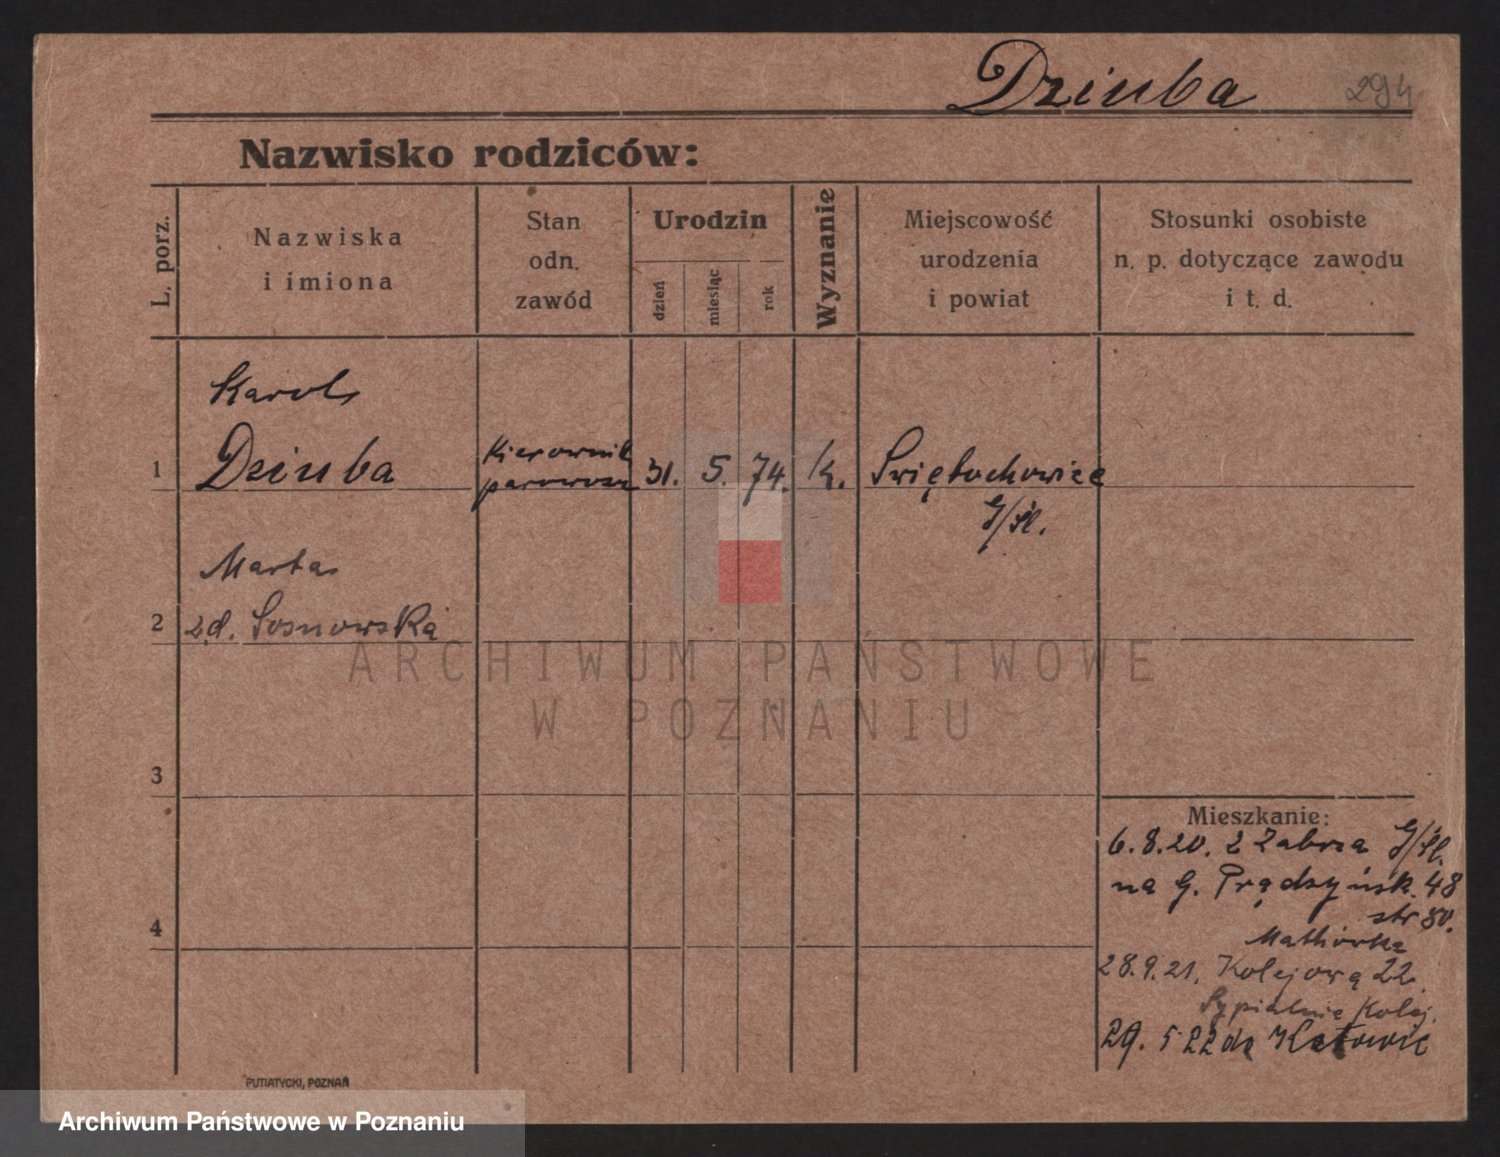 Dziuba 294
Nazwisko rodziców:
L. porz.
Nazwiska
i imiona
Stan
odn.
zawód
Urodzin
dzień
miesiąc
rok
Wyznanie
Miejscowość
urodzenia
i powiat
Stosunki osobiste
n. p. dotyczące zawodu
i t. d.
Karol
1 Dziuba
Kierownik
parowozu
31. 5. 74. k. Świętochowice
G/Śl.
Marta
2 zd. Sosnowska
ARCHIWUM PAŃSTWOWE
W POZNANIU
3
4
Mieszkanie:
6.8.20. z Zabrza G/Śl.
na G. Prądzyńsk. 48
str 80.
28.9.21. Kolejową 22.
Sypialnia Kolej.
29. 5 22 do Katowic
PUTIATYCKI, POZNAŃ
Archiwum Państwowe w Poznaniu